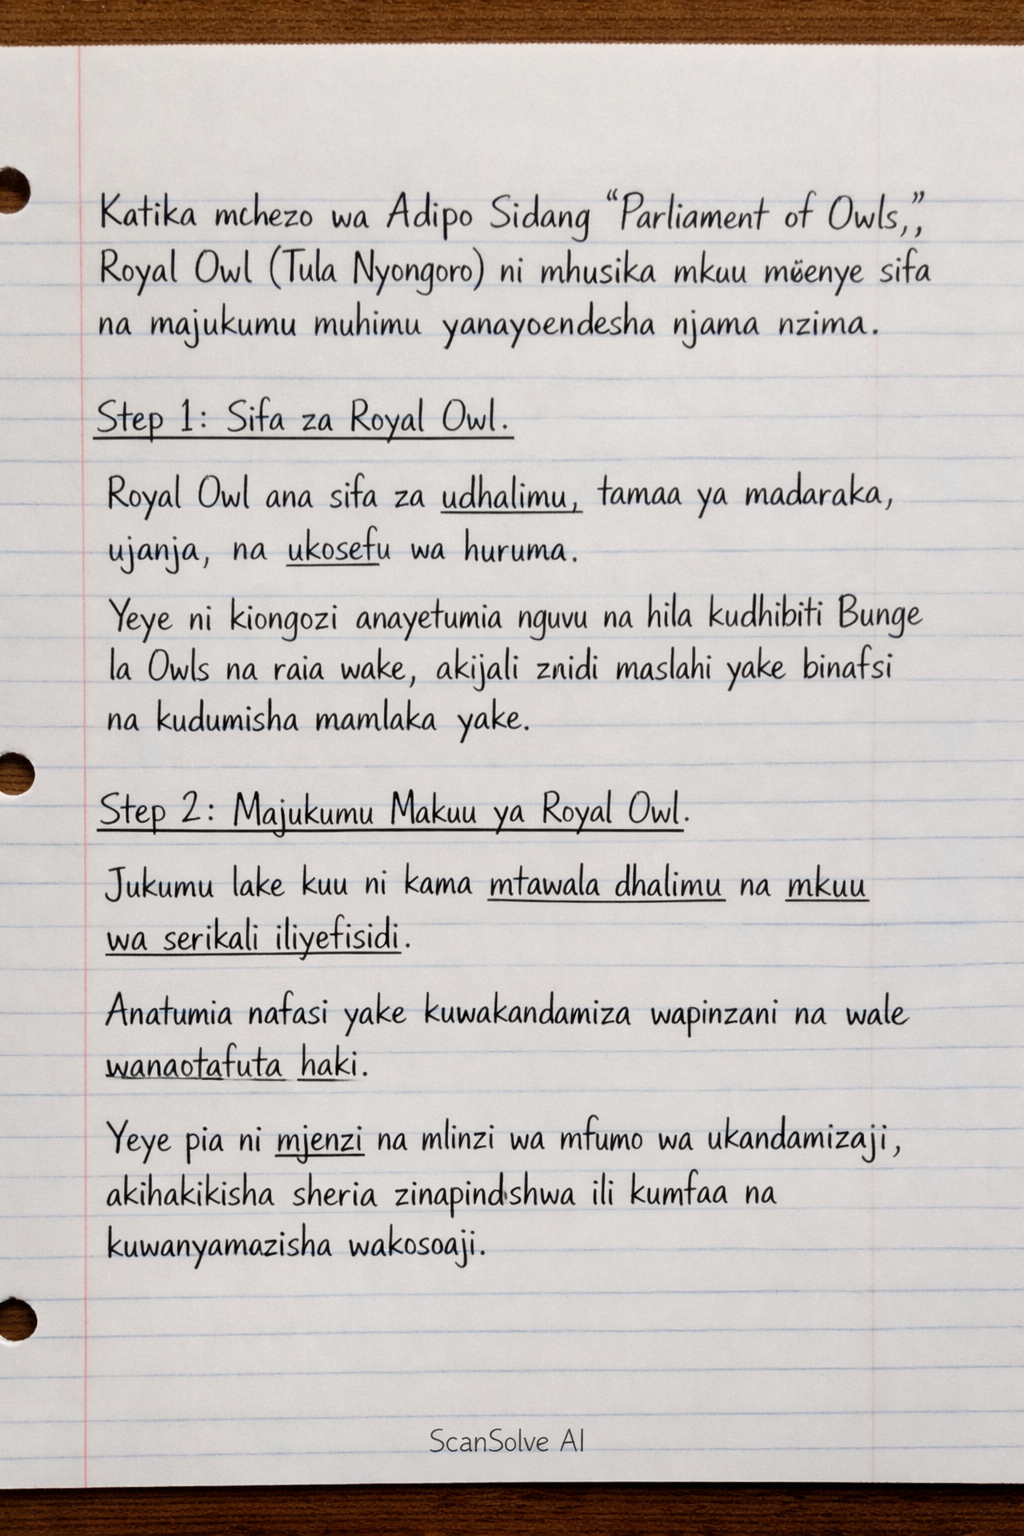 Katika mchezo wa Adipo Sidang “Parliament of Owls,”,
Royal Owl (Tula Nyongoro) ni mhusika mkuu mëenye sifa
na majukumu muhimu yanayoendesha njama nzima.
Step 1: Sifa za Royal Owl.
Royal Owl ana sifa za udhalimu, tamaa ya madaraka,
ujanja, na ukosefu wa huruma.
Yeye ni kiongozi anayetumia nguvu na hila kudhibiti Bunge
la Owls na raia wake, akijali znidi maslahi yake binafsi
na kudumisha mamlaka yake.
Step 2: Majukumu Makuu ya Royal Owl.
Jukumu lake kuu ni kama mtawala dhalimu na mkuu
wa serikali iliyefisidi.
Anatumia nafasi yake kuwakandamiza wapinzani na wale
wanaotafuta haki.
Yeye pia ni mjenzi na mlinzi wa mfumo wa ukandamizaji,
akihakikisha sheria zinapindishwa ili kumfaa na
kuwanyamazisha wakosoaji.
ScanSolve AI